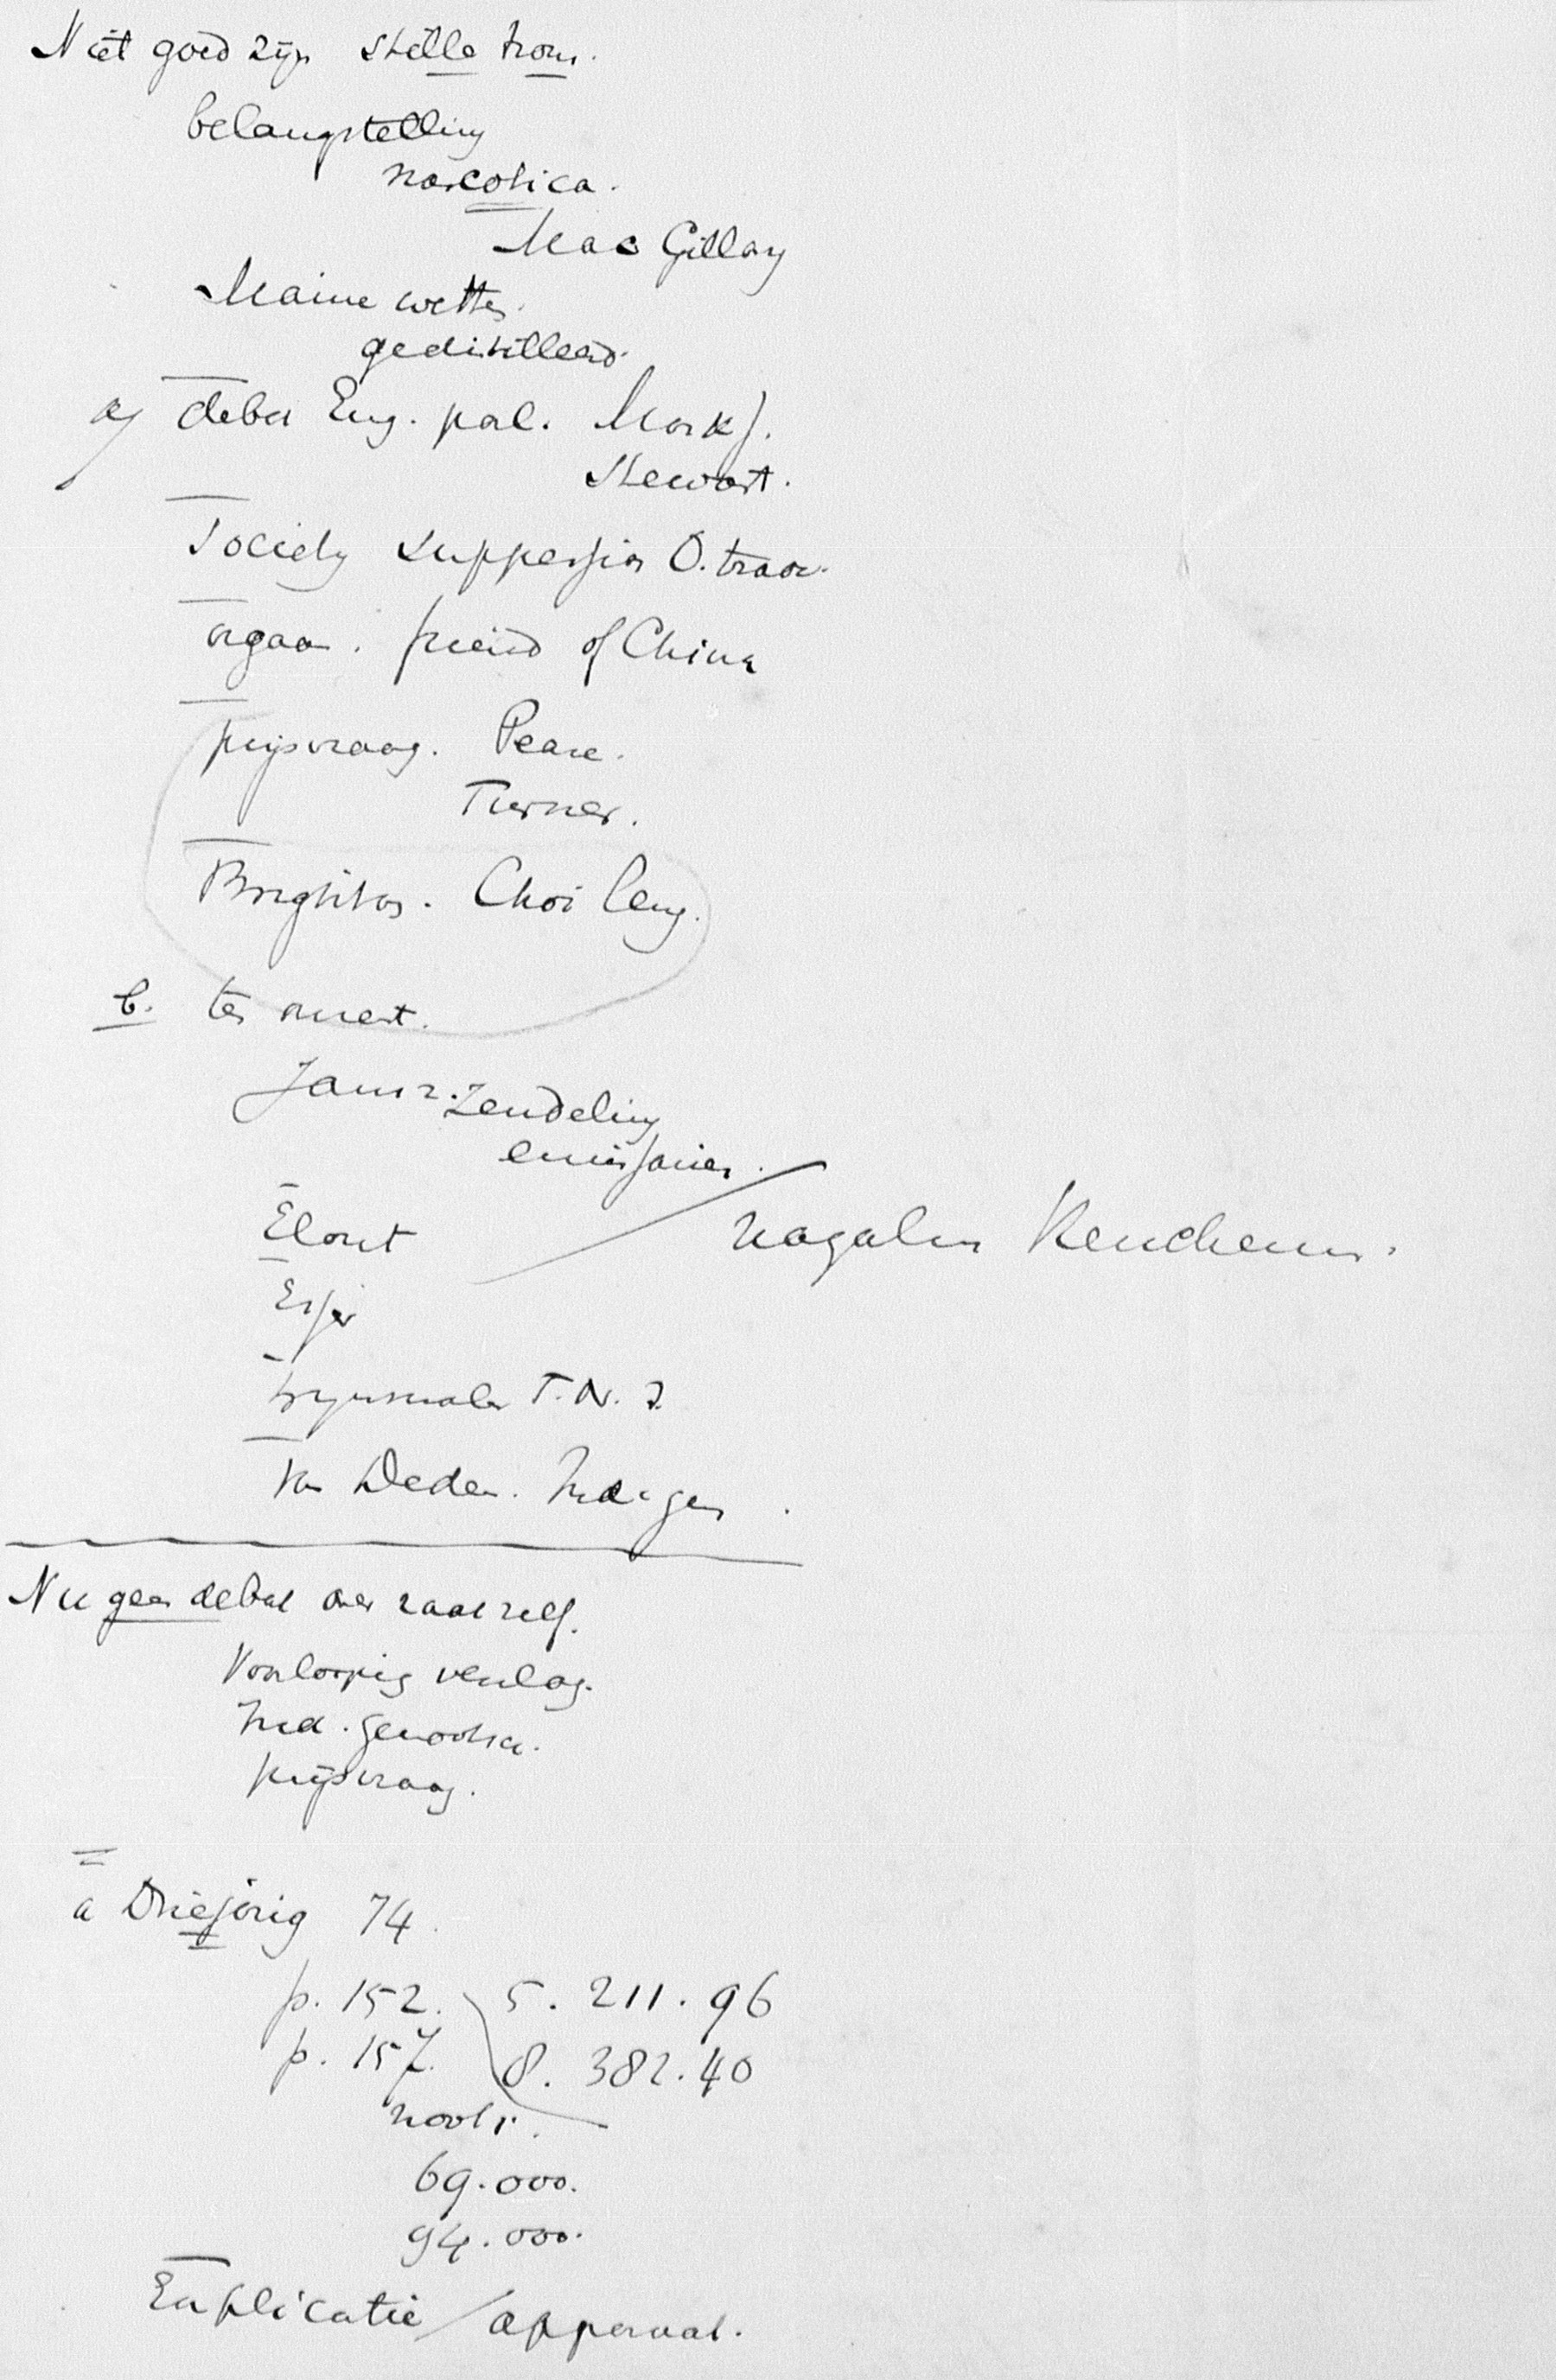 Niet goed zijn stille trom.
belangstelling
narcotica.
Mac Gillavry
Maine wetten.
gedistilleerd.
a) debat Eng. parl. Mark J.
Stewart.
Society suppression O. trade.
orgaan. friend of China
prijsvraag. Pease.
Turner.
Brighton. Choi Leng.
b. ten onzent.
Jansz. Zendeling
emissaries.
Elout
nagalm Keuchenius.
Esser
brijnmaler T. N. I.
Van Dedem. Ind. gen.
Nu geen debat over zaak zelf.
Voorloopig verslag.
Ind. genootsch.
prijsvraag.
a Driejarig 74.
p. 152. 5. 211. 96
p. 157. 8. 382. 40
noot 1.
69.000.
94.000.
Explicatie / apperval.